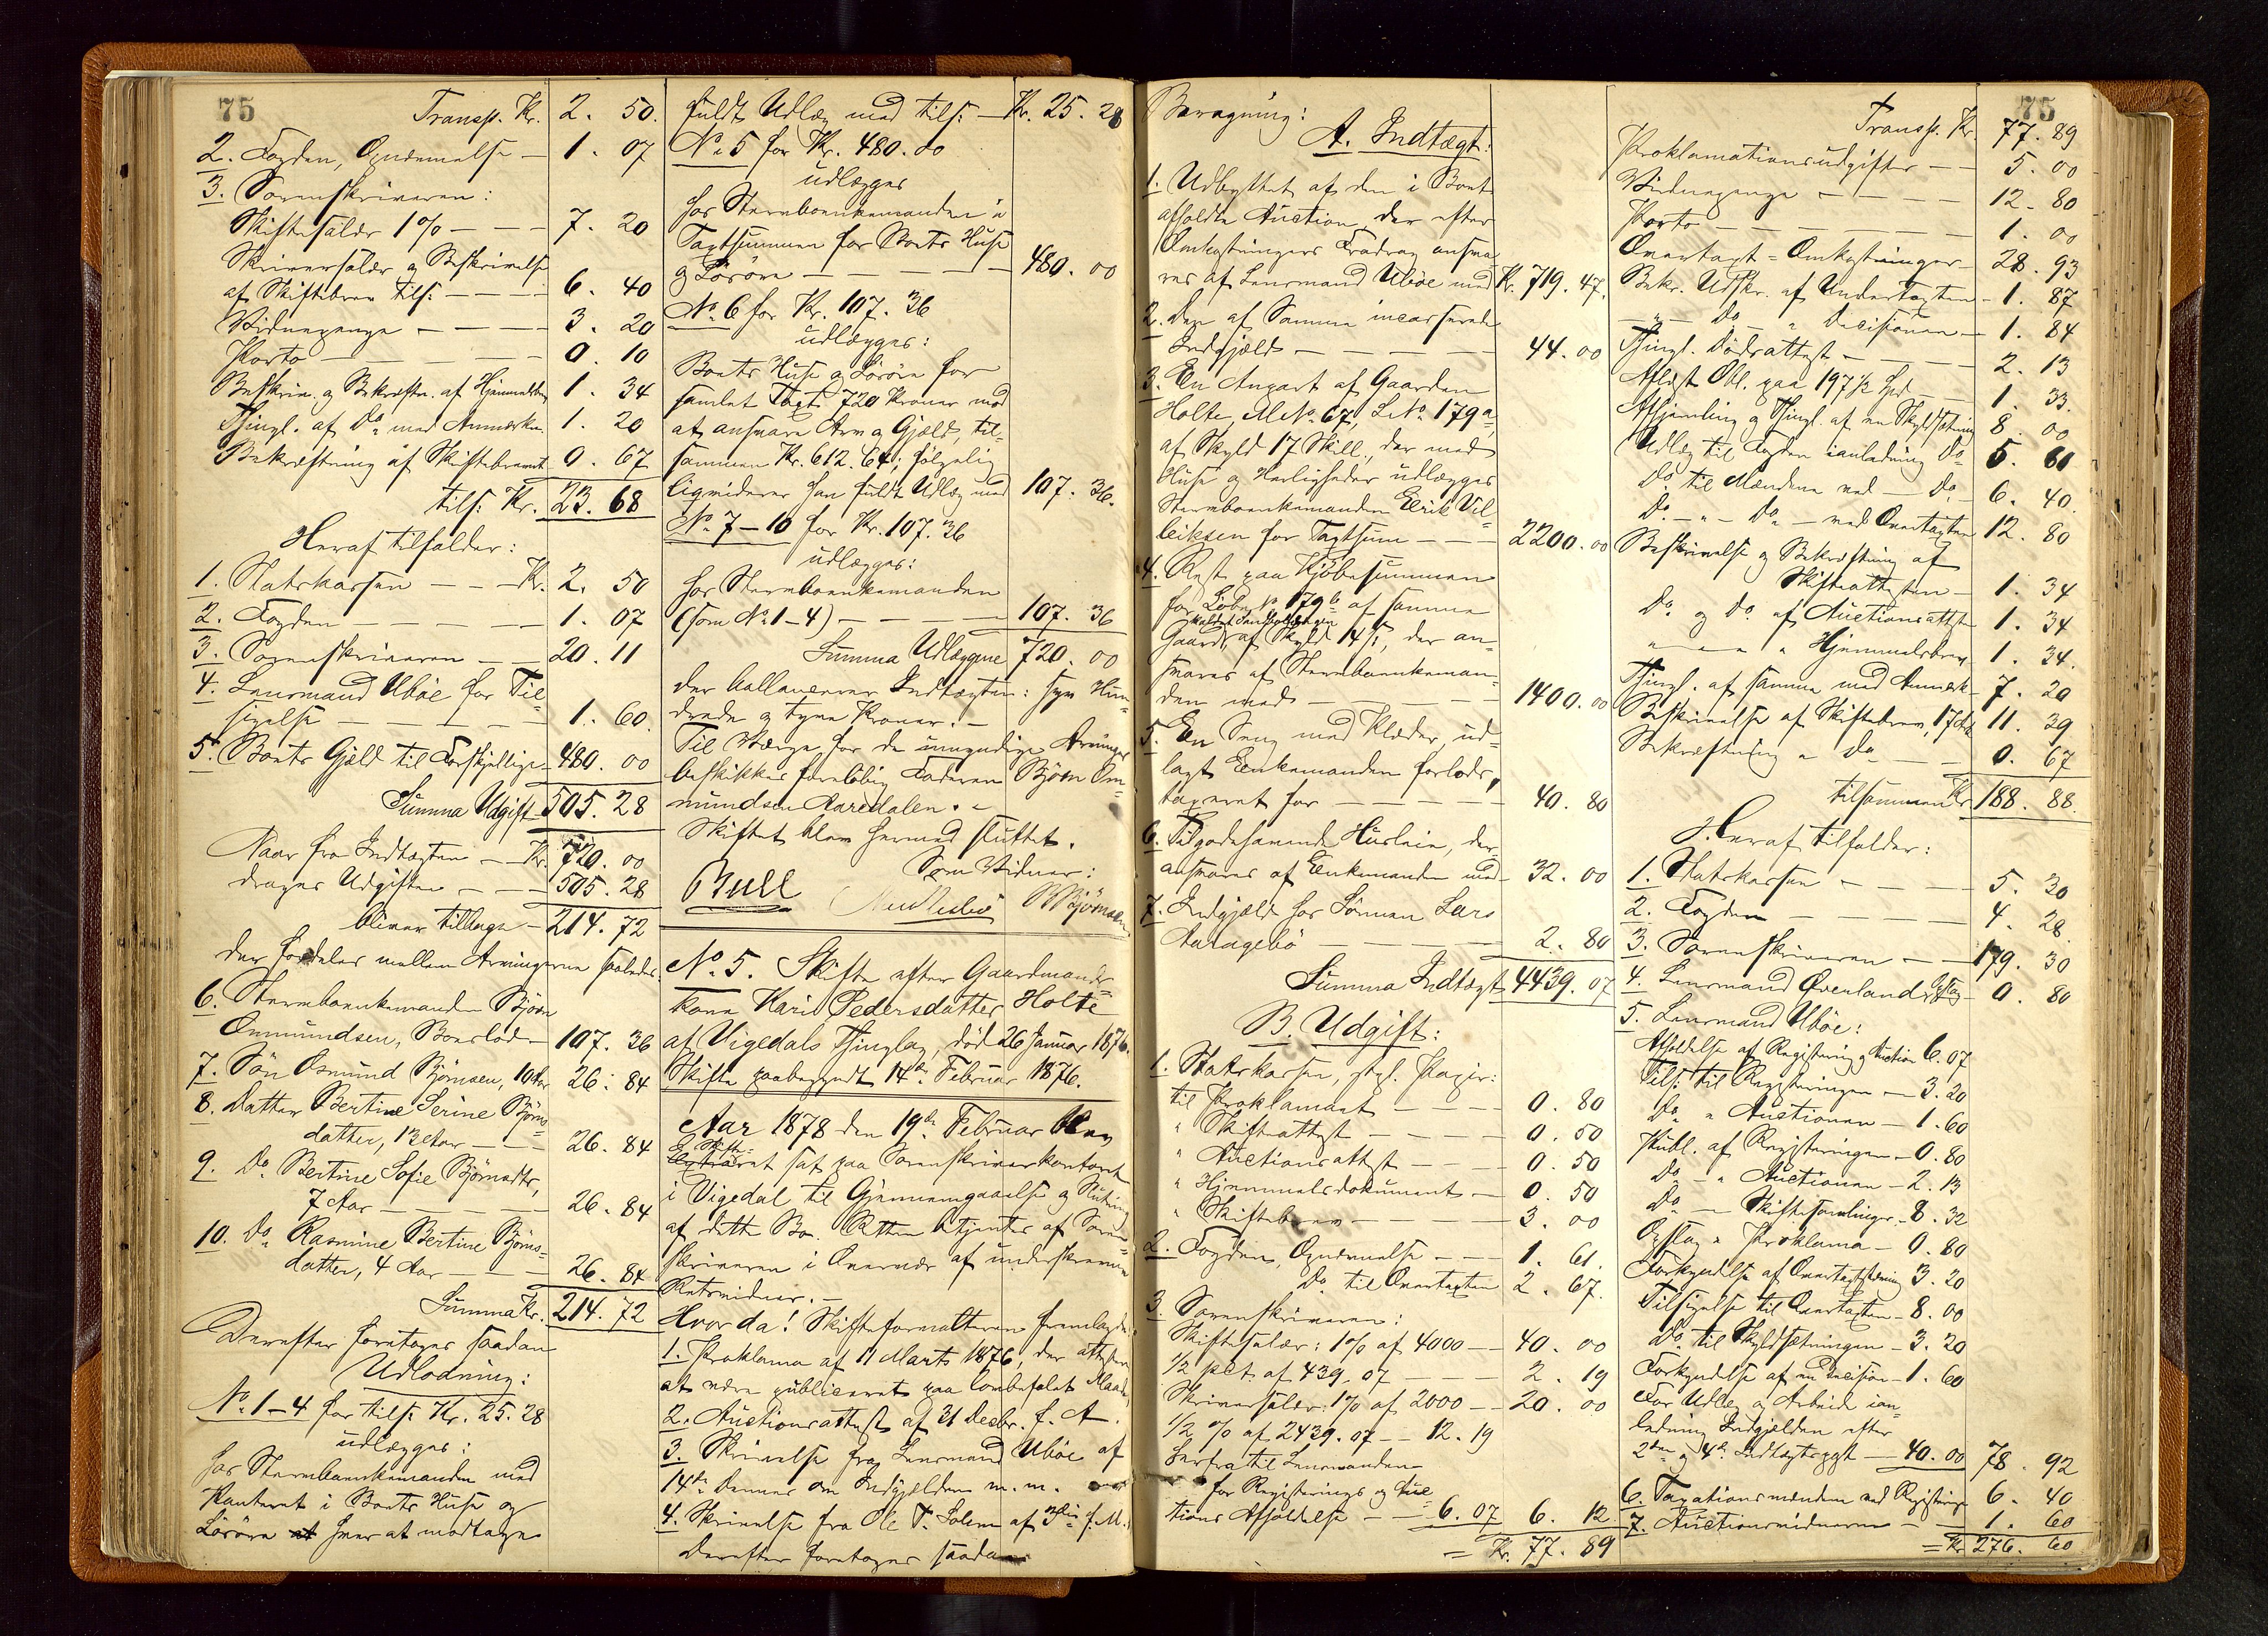 75
Transp. Kr. 2. 50.
2. Fogden, Opnævnelse — 1. 07
3. Sorenskriveren:
Skiftesalær 1% — — — 7. 20
Skriversalær og Beskrivelse
af Skiftebrev tils: — — — 6. 40
Vidnepenge — — — 3. 20
Porto — — — 0. 10
Beskriv. og Bekræftn. af Hjemmelsbrev 1. 34
Thingl. af Do. med Anmærkn. 1. 20
Bekræftning af Skiftebrevet 0. 67
tils: Kr. 23. 68
Heraf tilfalder:
1. Statskassen — — Kr. 2. 50
2. Fogden — — — 1. 07
3. Sorenskriveren — — 20. 11
4. Lensmand Ubøe for Til-
sigelse — — — 1. 60
5. Boets Gjæld til Forskjellige 480. 00
Summa Udgift 505. 28
Naar fra Indtægten — Kr. 720. 00
drages Udgiften — — 505. 28
bliver tilbage — 214. 72
der fordeles mellem Arvingerne saaledes:
6. Stervboenkemanden Bjørn
Omundsen, Boeslod — 107. 36
7. Søn Osmund Bjørnsen, 10 Aar 26. 84
8. Datter Bertine Serine Bjørns-
datter, 13 Aar — — 26. 84
9. Do. Bertine Sofie Bjørnsdtr,
7 Aar — — — 26. 84
10. Do. Rasmine Bertine Bjørns-
datter, 4 Aar — — — 26. 84
Summa Kr. 214. 72
Derefter foretoges saadan
Udlodning:
No. 1–4 for tils: Kr. 25. 28
udlægges:
hos Stervboenkemanden med
Panteret i Boets Huse og
Løsøre at hver at modtage
fuldt Udlæg med tils: — Kr. 25. 28
No. 5 for Kr. 480. 00
udlægges
hos Stervboenkemanden i
Taxtsummen for Boets Huse
og Løsøre — — — 480. 00
No. 6 for Kr. 107. 36
udlægges:
Boets Huse og Løsøre for
samlet Taxt 720 Kroner mod
at ansvare Arv og Gjæld, til-
sammen Kr. 612. 64; følgelig
liqviderer han fuldt Udlæg med 107. 36.
No. 7–10 for Kr. 107. 36
udlægges:
hos Stervboenkemanden
(som No. 1–4) — — — 107. 36
Summa Udlæggene 720. 00
der ballancerer Indtægten: syv Hun-
drede og tyve Kroner. —
Til Værge for de umyndige Arvinger
beskikkes foreløbig Faderen Bjørn Om-
mundsen Aaredalen. —
Skiftet blev hermed sluttet.
Som Vidner:
Bull
B Bjørnsen
No. 5. Skifte efter Gaardmands-
kone Kari Pedersdatter Holte
af Vigedals Thinglag, død 26 Januar 1876.
Skifte paabegyndt 14de Februar 1876.
Aar 1878 den 19de Februar blev
E. Skifte-
ret sat paa Sorenskriverkontoret
i Vigedal til Gjennemgaaelse og Slutning
af dette Bo. Retten betjentes af Soren-
skriveren i Overvær af underskrevne
Retsvidner. —
Hvorda! Skifteforvalteren fremlagde:
1. Proklama af 11 Marts 1876, der attesteres
at være publiceret paa lovbefalet Maade,
2. Auctionsattest af 31 Decbr. f. A.
3. Skrivelse fra Lensmand Ubøe af
14de dennes om Indgjælden m. m.
4. Skrivelse fra Ole T. Solem af 3die f. M.
Derefter foretoges saadan
Beregning:
A. Indtægt:
1. Udbyttet af den i Boet
afholdte Auction, der efter
Omkostningers Fradrag ansva-
res af Lensmand Ubøe med Kr. 719. 47.
2. Den af Samme incasserede
Indgjæld — — — 44. 00
3. En Anpart af Gaarden
Holte, M.No. 67, L.No. 179a,
af Skyld 17 Skill., der med
Huse og Herligheder udlægges
Stervboenkemanden Eerik Vil-
leiksen for Taxtsum — — 2200. 00
4. Rest paa Kjøbesummen
for Løbe No. 179b af samme
Gaard, af Skyld 14 ß, der an-
svares af Stervboenkeman-
den med — — — 1400. 00
5. En Seng med Klæder, ud-
lagt Enkemanden forlods,
taxeret for — — — 40. 80
6. Tilgodehavende Husleie, der
ansvares af Enkemanden med 32. 00
7. Indgjæld hos Sønnen Lars
— — — 2. 80
Summa Indtægt 4439. 07
B. Udgift:
1. Statskassen, stpl. Papir:
til Proklamaet — — — 0. 80
" Skifteattest — — — 0. 50
" Auctionsattest — — — 0. 50
" Hjemmelsdokument — 0. 50
" Skiftebrev — — — 3. 00
2. Fogden, Opnævnelse — — 1. 61.
Do. til Overtaxten 2. 67.
3. Sorenskriveren:
Skiftesalær: 1% af 4000 — 40. 00
1/2 pct. af 439. 07 — — — 2. 19
Skriversalær: 1% af 2000 — 20. 00
1/2 % af 2439. 07 — — 12. 19
herfra til Lensmanden
for Registerings og Auc-
tions Afholdelse — — 6. 07 6. 12
= Kr. 77. 89
75
Transp. Kr. 77. 89
Proklamationsudgifter — — 5. 00
Vidnepenge — — — 12. 80
Porto — — — 1. 00
Overtaxt = Omkostninger 28. 93
Bekr. Udskr. af Undertaxten 1. 87
— " — Do. — " Decisionen — 1. 84
Thingl. Dødsattest — — — 2. 13
Aflæst Obl. paa 197 1/2 Spd — 1. 33.
Afhjemling og Thingl. af en Skyldsætning 8. 00
Udlæg til Fogden ianledning Do. 5. 61
Do. til Mændene ved — Do. 6. 40.
Do. — " — Do. — ved Overtaxten 12. 80
Beskrivelse og Bekræftning af
Skifteattesten — 1. 34
Do. og Do. af Auctionsattest 1. 34
" — " — " Hjemmelsbrev 1. 34.
Thingl. af samme med Anmærk. 7. 20
Beskrivelse af Skiftebrev, 17 Ark 11. 39
Bekræftning " Do. — — 0. 67
tilsammen Kr. 188. 88.
Heraf tilfalder:
1. Statskassen — — — 5. 30
2. Fogden — — — 4. 28
3. Sorenskriveren — — 179. 30
4. Lensmand Øverland, Opslag 0. 80
5. Lensmand Ubøe:
Afholdelse af Registering og Auction 6. 07
Tils: til Registeringen — 3. 20
Do. " Auctionen — 1. 60
Publ. af Registeringen — 0. 80
Do. — " Auctionen — 2. 13
Do. — Skiftesamlinger 8. 32
Opslag " Proklama — 0. 80
Forkyndelse af Overtaxtstævning 3. 20
Tilsigelse til Overtaxten — 8. 00
Do. til Skyldsætningen — 3. 20
Forkyndelse af en Decision — 1. 60
For Udlæg og Arbeide ian-
ledning Indgjælden efter
2den og 4de Indtægtspost — 40. 00 78. 92
6. Taxationsmændene ved Registering 6. 40
7. Auctionsvidnerne — — 1. 60
= Kr 276. 60